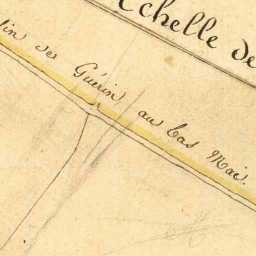 Echelle de
lin de Guérin au bas Mac.